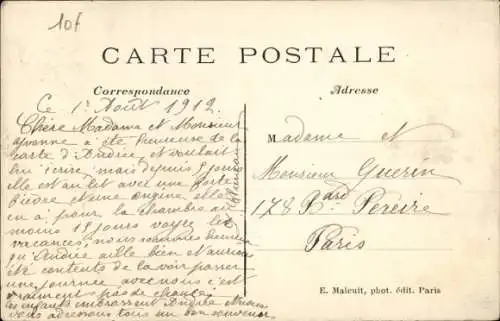 10f
CARTE POSTALE
Correspondance
Adresse
Ce 1r Août 1912
Chère Madame et Monsieur
Yvonne a été heureuse de la
carte d'Andrée et voulait
lui écrire mais depuis 5 jours
elle est au lit avec une forte
fièvre et une angine elle
en a pour la chambre au
moins 15 jours voyez les
vacances, nous sommes heureux
qu'Andrée aille bien et aurions
été contents de la voir passer
une journée avec nous c'est
vraiment pas de chance
les enfants embrassent Andrée
vous adressons tous un bon souvenir
Madame et
Monsieur Guérin
178 Bard Pereire
Paris
E. Malcuit, phot. édit. Paris